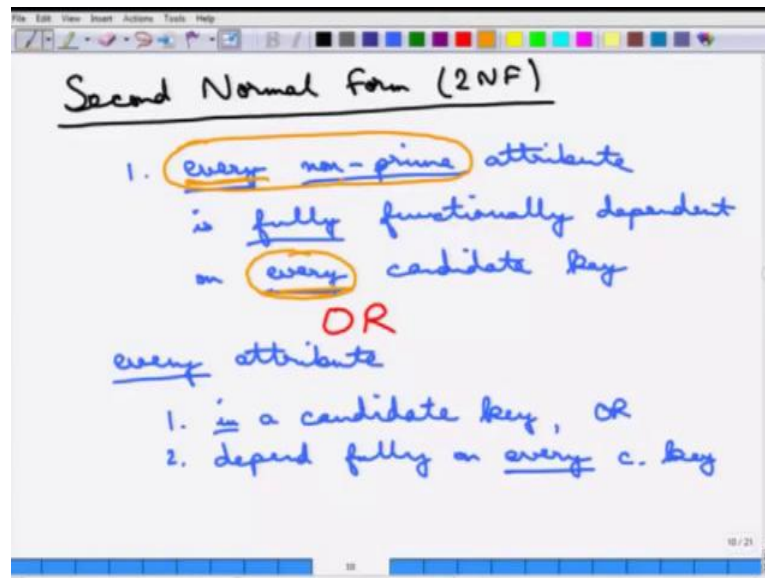 File Edit View Insert Actions Tools Help
Second Normal Form (2NF)
1. every non-prime attribute
is fully functionally dependent
on every candidate key
OR
every attribute
1. in a candidate key, OR
2. depend fully on every c. key
10 / 21
10